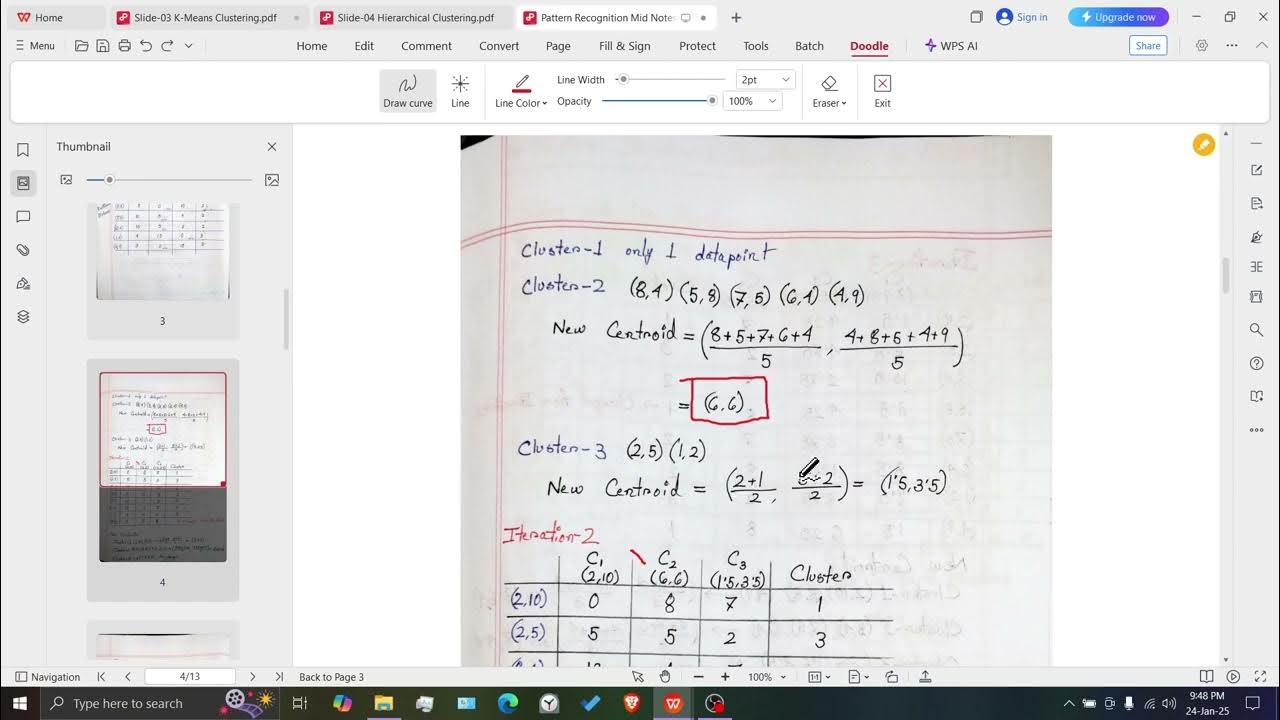 Home
Slide-03 K-Means Clustering.pdf
Slide-04 Hierarchical Clustering.pdf
Pattern Recognition Mid Notes
Sign in
Upgrade now
Menu
Home Edit Comment Convert Page Fill & Sign Protect Tools Batch Doodle WPS AI
Share
Draw curve
Line
Line Color
Line Width
2pt
Opacity
100%
Eraser
Exit
Thumbnail
3
4
Cluster-1 only 1 datapoint
Cluster-2 (8,4) (5,8) (7,5) (6,4) (4,9)
New Centroid = (8+5+7+6+4/5, 4+8+5+4+9/5)
= (6,6)
Cluster-3 (2,5) (1,2)
New Centroid = (2+1/2, 2/2) = (1.5,3.5)
Iteration-2
C1 C2 C3
(2,10) (6,6) (1.5,3.5) Cluster
(2,10) 0 8 7 1
(2,5) 5 5 2 3
Navigation
4/13
Back to Page 3
100%
Type here to search
9:48 PM
24-Jan-25